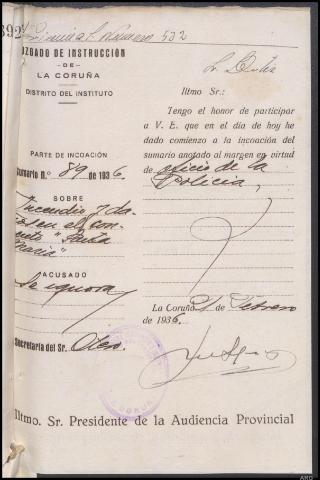 392
Criminal Número 532
JUZGADO DE INSTRUCCIÓN
-DE-
LA CORUÑA
DISTRITO DEL INSTITUTO
PARTE DE INCOACIÓN
Sumario N.º 89 de 1936.
SOBRE
Incendio y da-
ños en el con-
vento "Santa
María"
ACUSADO
Se ignora
Secretaría del Sr. Otero.
Sr.
Iltmo Sr:
Tengo el honor de participar
a V. E. que en el día de hoy he
dado comienzo a la incoación del
sumario anotado al margen en virtud
de oficio de la
Policía,
La Coruña 21 de Febrero
de 1936.
Iltmo. Sr. Presidente de la Audiencia Provincial